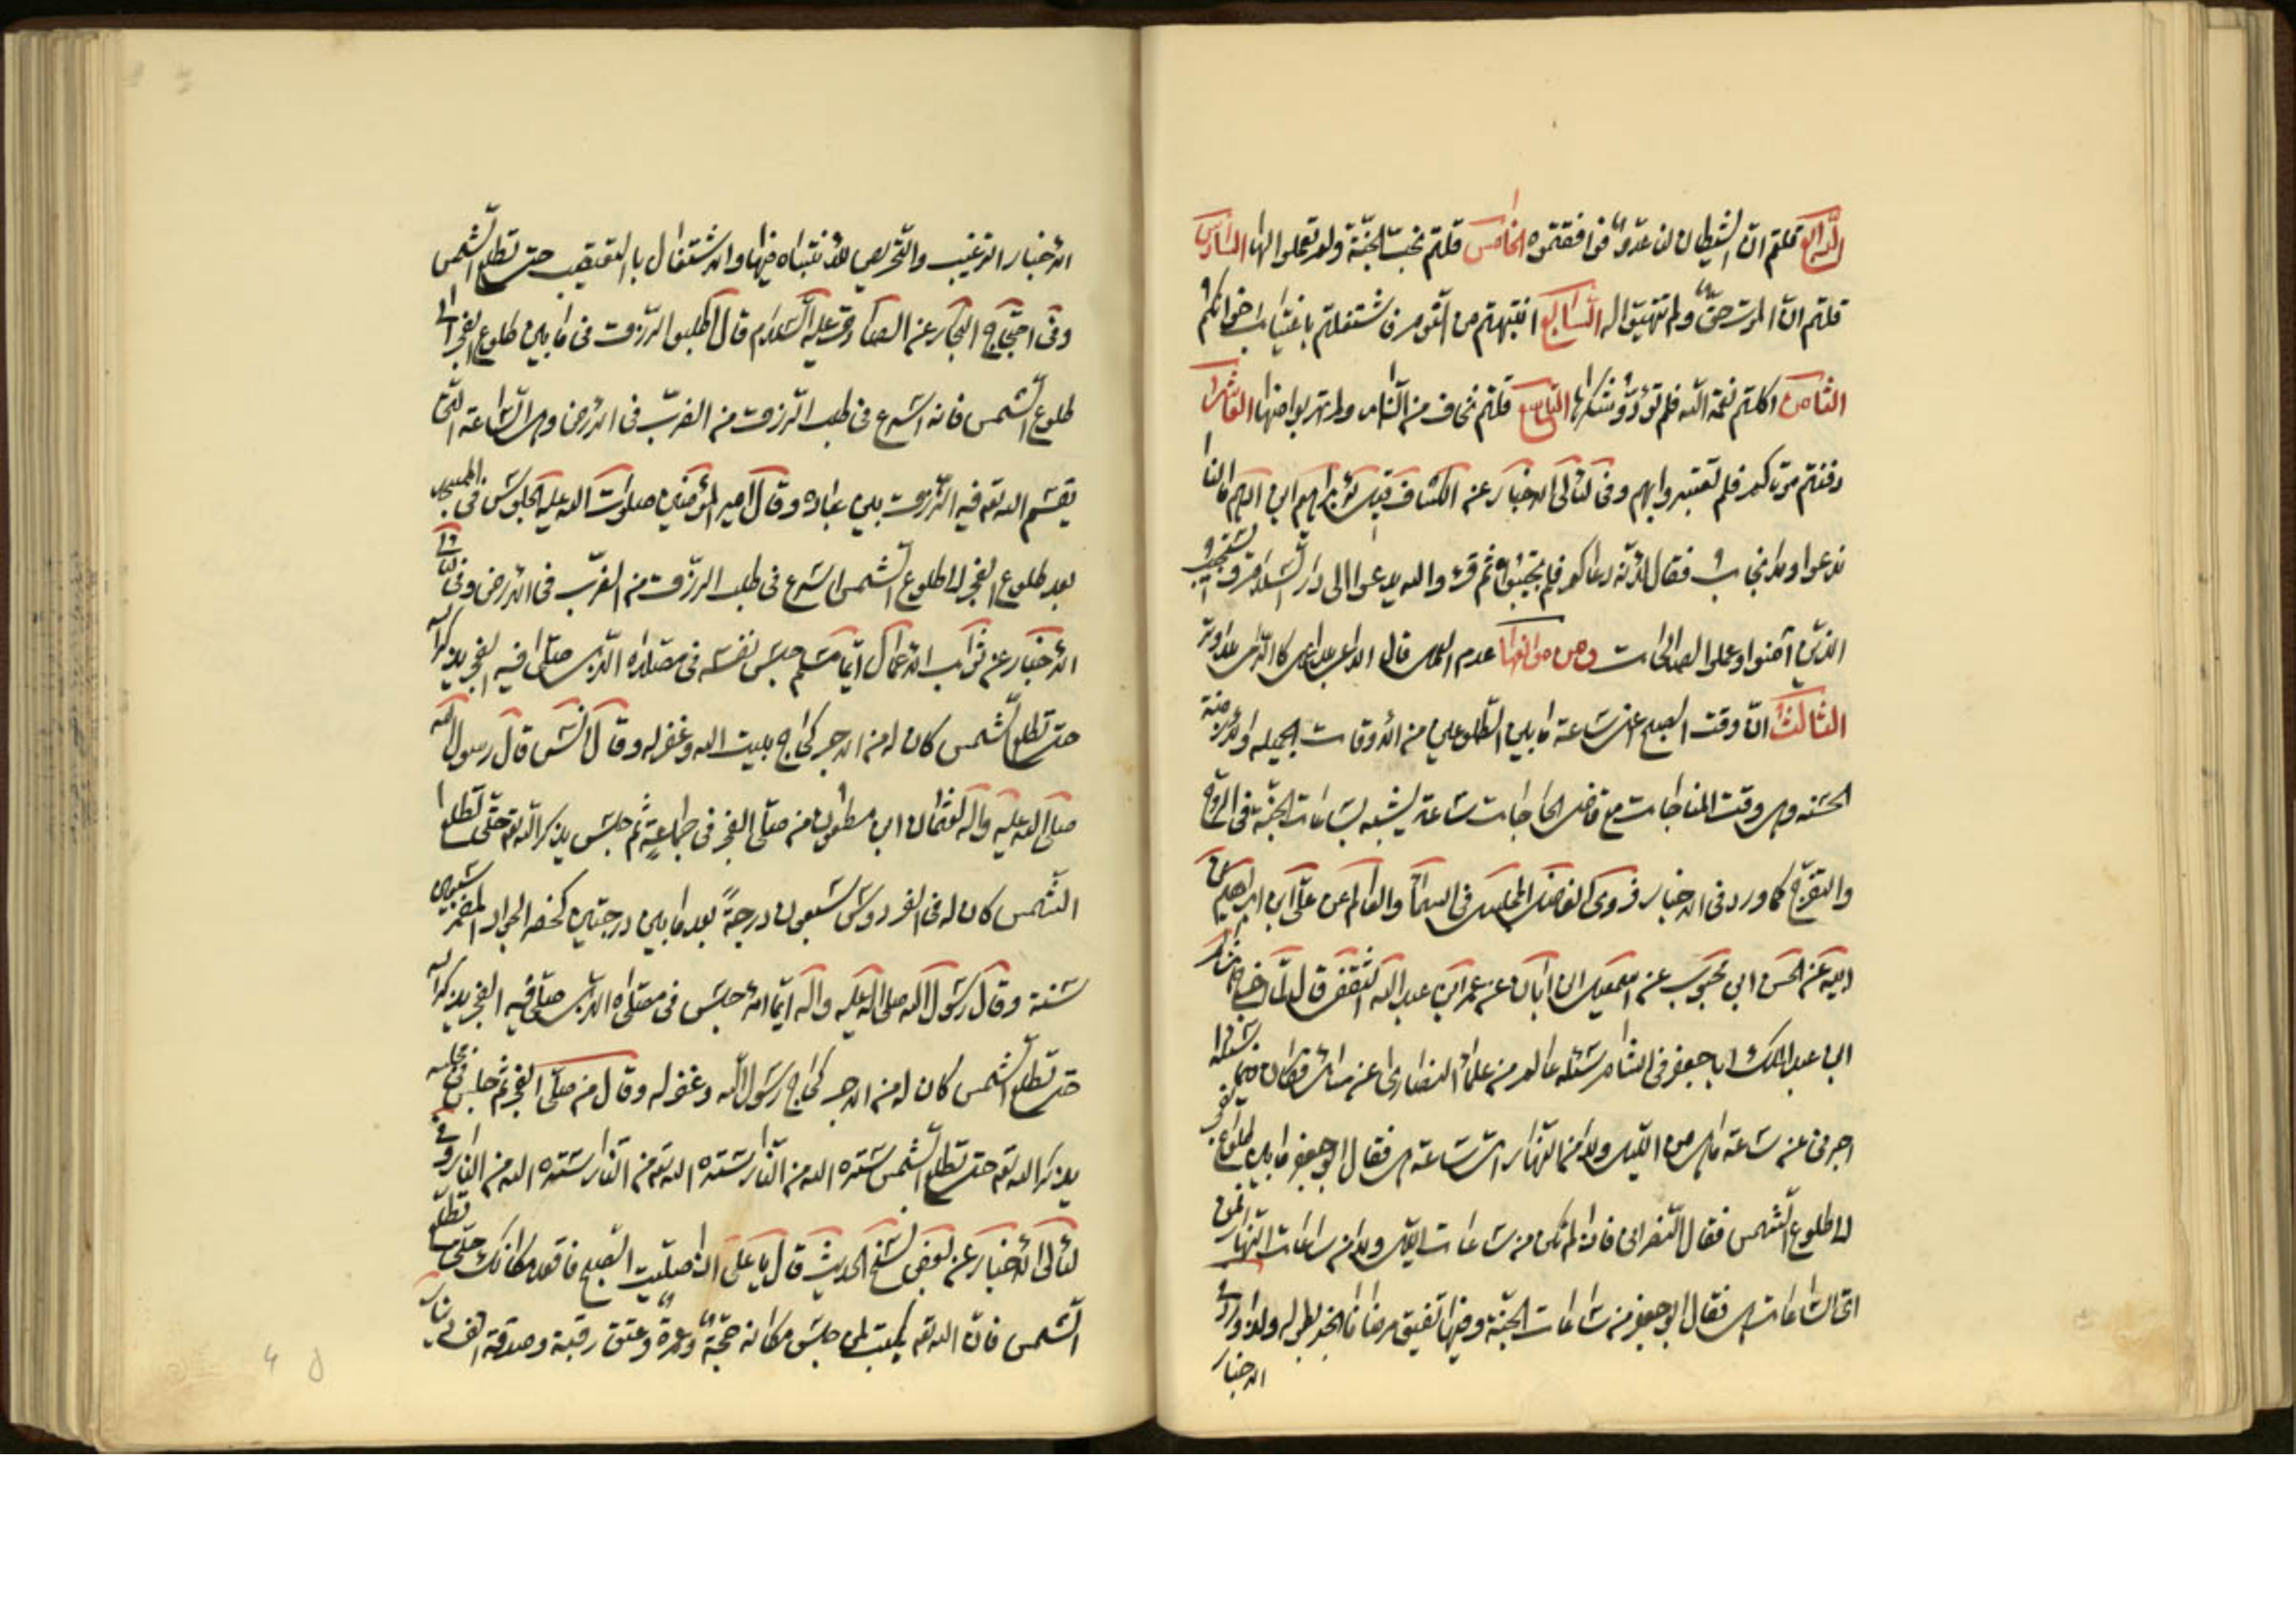 الرابع قلتم ان الشيطان لنا عدو فوافقتموه الخامس قلتم نحب الجنة ولم تعملوا لها السادس
قلتم ان الموت حق ولم تتهيئوا له السابع انتبهتم من النوم فاشتغلتم باغتياب اخوانكم
الثامن اكلتم نعمة الله فلم تؤدوا شكرها التاسع قلتم نخاف من النار ولم تهربوا منها العاشر
دفنتم موتاكم فلم تعتبروا بهم وفى لئالى الاخبار عن الكشاف قيل لابراهيم ابن ادهم ما لنا
ندعوا ولا نجاب فقال لانه دعاكم فلم تجيبوا ثم قرء والله يدعوا الى دار السلام ويستجيب
الذين آمنوا وعملوا الصالحات ومن موانعها عدم العمل قال الداعى بلا عمل كالرامى بلا وتر
الثالث ان وقت الصبح اعنى ساعة ما بين الطلوعين من الاوقات الجميلة والازمنة
الحسنه وهى وقت المناجات مع قاضى الحاجات ساعة يشبه بساعات الجنة فى الروح
والتفرج كما ورد فى الاخبار فروى الفاضل المجلسى فى السماء والعالم عن على ابن ابراهيم عن
ابيه عن الحسن ابن محبوب عن اسمعيل ابن ابان عن عمر ابن عبد الله الثقفى قال لما اخرج هشام
ابن عبد الملك ابا جعفر فى الشام سئله عالم من علماء النصارى عن مسائل فكان فيما سئله
اخبرنى عن ساعة ما هى من الليل ولا من النهار اى ساعة هى فقال ابو جعفر ما بين طلوع الفجر
الى طلوع الشمس فقال النصرانى فاذا لم تكن من ساعات الليل ولا من ساعات النهار فمن
اى الساعات هى فقال ابو جعفر من ساعات الجنة وفيها تفيق مرضانا الخبر بطوله ولذا ورد فى
الاخبار
الاخبار الترغيب والتحريص للانتباه فيها والاشتغال بالتعقيب حتى تطلع الشمس
وفى احتجاج البحار عن الصادق عليه السلام قال اطلبوا الرزق فى ما بين طلوع الفجر الى
طلوع الشمس فانه اسرع فى طلب الرزق من الضرب فى الارض وهى الساعة التى
يقسم الله تعه فيه الرزق بين عباده وقال امير المؤمنين صلوات الله عليه الجلوس فى المسجد
بعد طلوع الفجر الى طلوع الشمس اسرع فى طلب الرزق من الضرب فى الارض وفى لئالى
الاخبار عن ثواب الاعمال ايما مسلم جلس نفسه فى مصلاه الذى صلى فيه الفجر يذكر الله
حتى تطلع الشمس كان له من الاجر كحاج بيت الله وغفر له وقال انس قال رسول الله
صلى الله عليه واله لعثمان ابن مظعون من صلى الفجر فى جماعة ثم جلس يذكر الله تعه حتى تطلع
الشمس كان له فى الفردوس سبعون درجة بعد ما بين درجتين كحضر الجواد المضمر سبعين
سنة وقال رسول الله صلى الله عليه واله ايما امرء جلس فى مصلاه الذى صلى فيه الفجر يذكر الله
حتى تطلع الشمس كان له من الاجر كحاج رسول الله وغفر له وقال من صلى الفجر ثم جلس فى مجلسه
يذكر الله تعه حتى تطلع الشمس ستره الله من النار ستره الله تعه من النار ستره الله من النار وفى
لئالى الاخبار عن بعض نسخ الحديث قال يا على اذا صليت الصبح فاقعد مكانك حتى تطلع
الشمس فان الله تعه يكتب لمن جلس مكانه حجة وعمرة وعتق رقبة وصدقة الف دينار